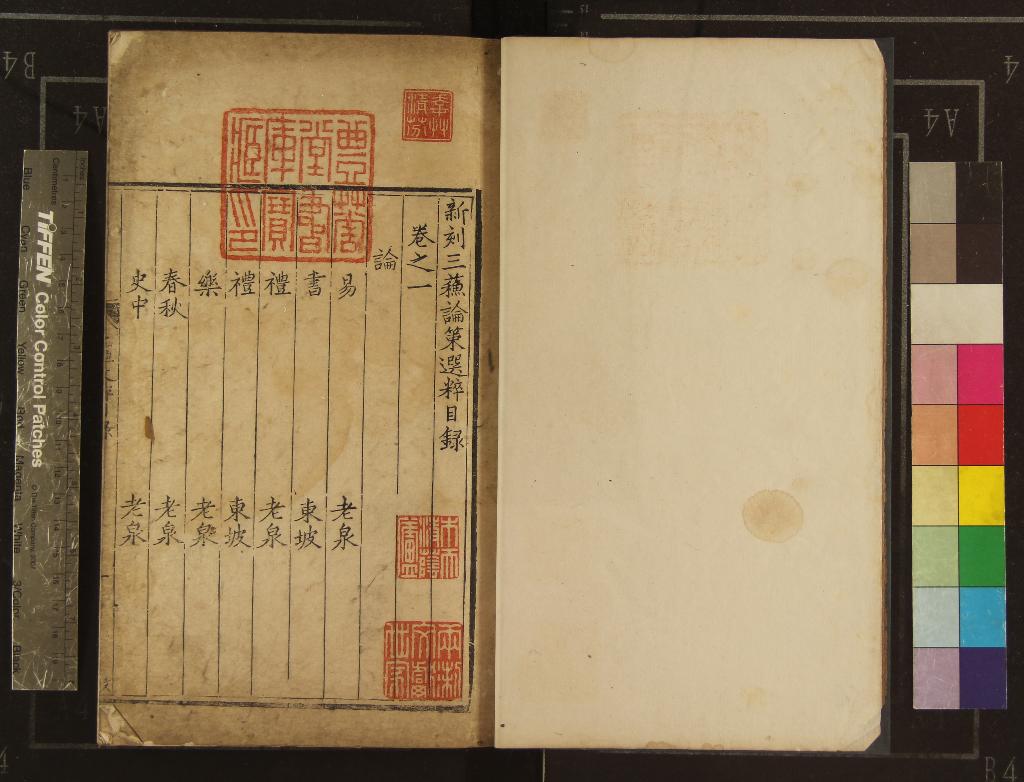 新刻三蘓論策選粹目録
卷之一
論
易 老泉
書 東坡
禮 老泉
禮 東坡
樂 老泉
春秋 老泉
史中 老泉
TIFFEN Color Control Patches
Blue
Cyan
Green
Yellow
Red
Magenta
White
3/Color
Black
Centimetres
B4
A4
A4
4
4
B4